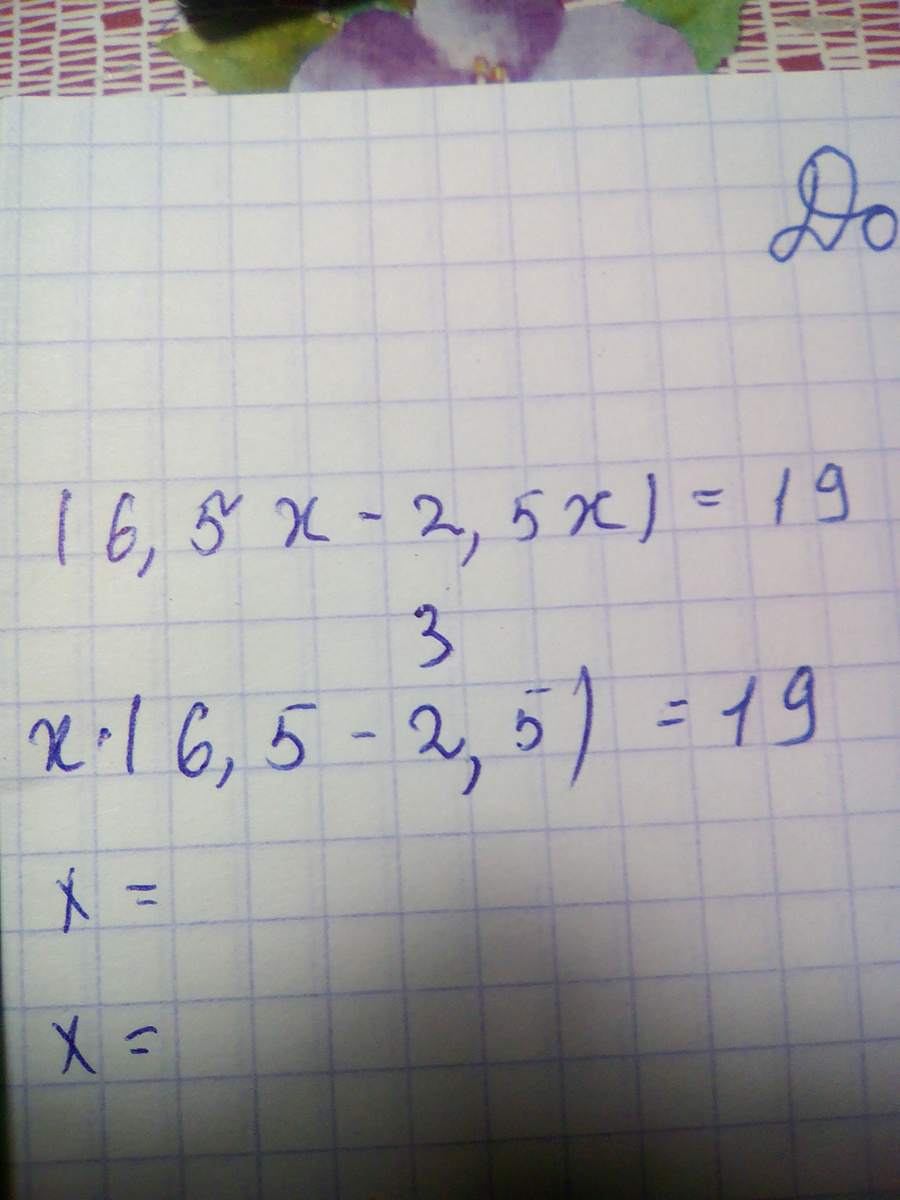 До
(6,5x-2,5x)=19
3
x·(6,5-2,5)=19
x=
x=